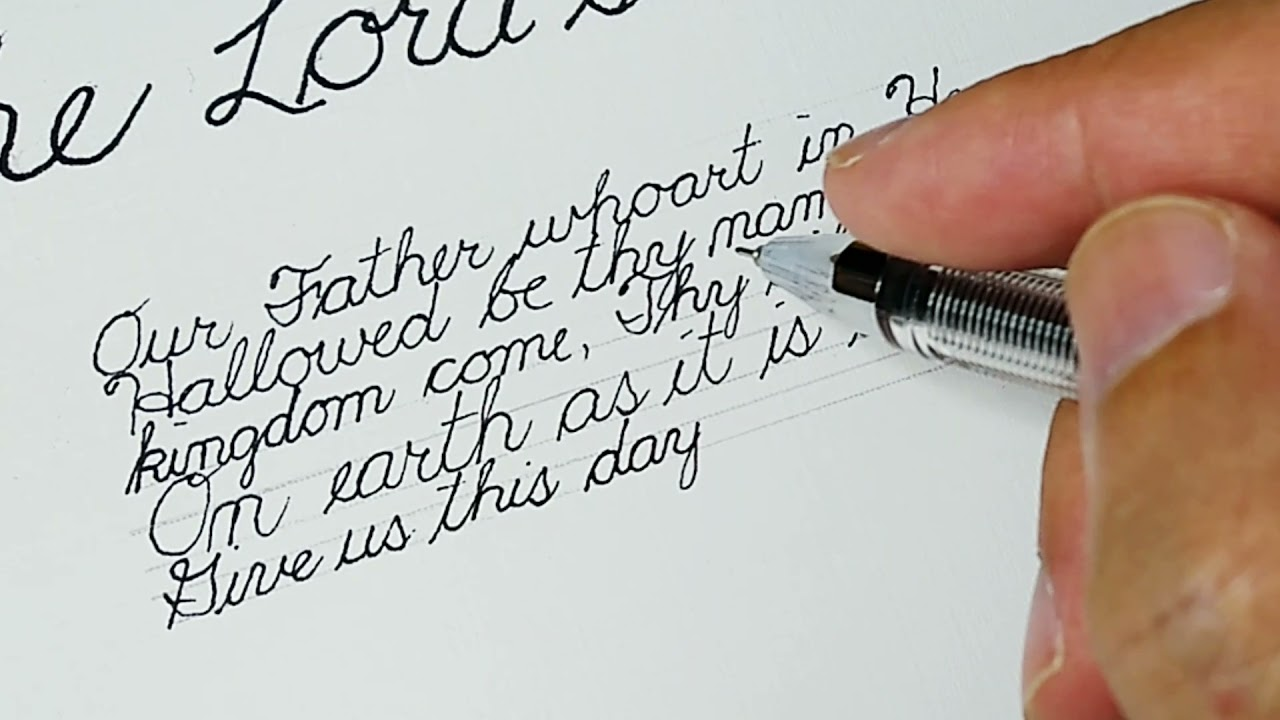 he Lord's
Our Father whoart in
Hallowed be thy
kingdom come, Thy
On earth as it is
Give us this day